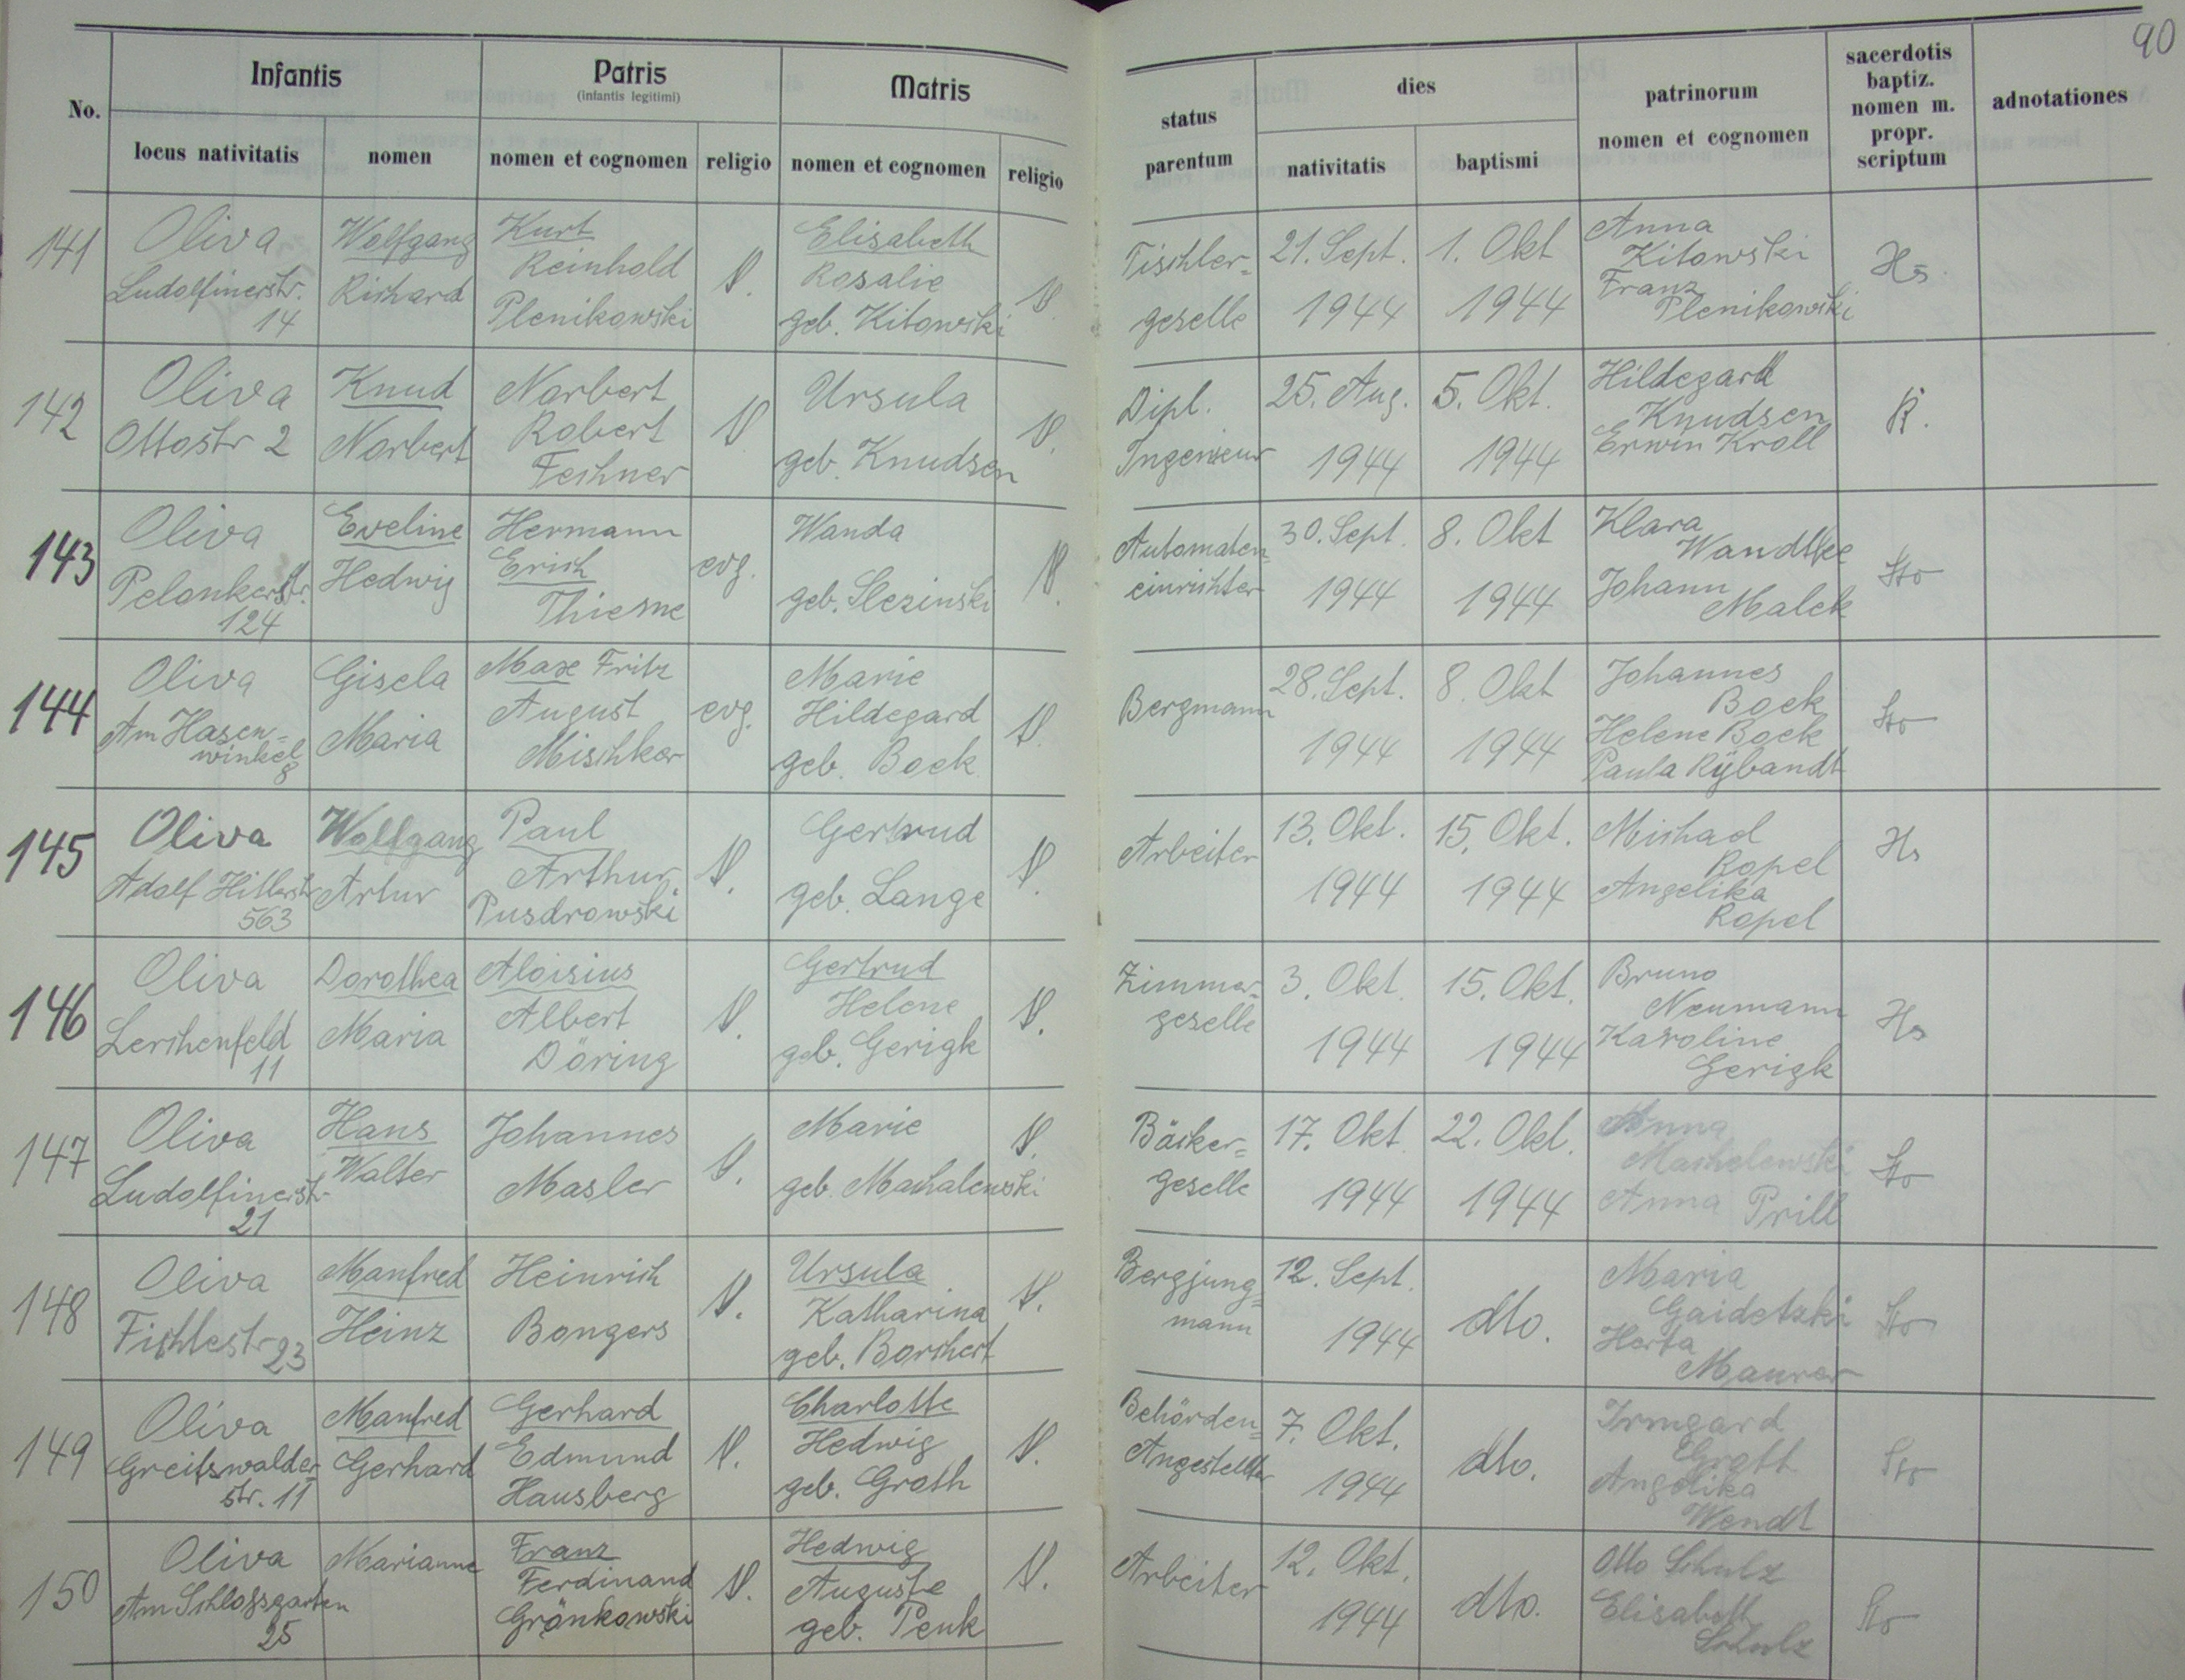 90
No.
Infantis
Patris
(infantis legitimi)
Matris
status
parentum
dies
patrinorum
nomen et cognomen
sacerdotis
baptiz.
nomen m.
propr.
scriptum
adnotationes
locus nativitatis
nomen
nomen et cognomen
religio
nomen et cognomen
religio
nativitatis
baptismi
141
Oliva
Ludolfinerstr.
14
Wolfgang
Richard
Kurt
Reinhold
Plenikowski
Elisabeth
Rosalie
geb. Kitowski
Tischler=
geselle
21. Sept.
1944
1. Okt
1944
Anna
Kitowski
Franz
Plenikowski
Hs
142
Oliva
Ottostr 2
Knud
Norbert
Norbert
Robert
Fechner
Ursula
geb. Knudsen
Dipl.
Ingenieur
25. Aug.
1944
5. Okt.
1944
Hildegard
Knudsen
Erwin Kroll
K.
143
Oliva
Pelonkerstr.
124
Eveline
Hedwig
Hermann
Erich
Thieme
evg.
Wanda
geb. Slezinski
Automaten=
einrichter
30. Sept.
1944
8. Okt
1944
Klara
Wandtke
Johann
Malek
Sto
144
Oliva
Am Hasen=
winkel
8
Gisela
Maria
Max Fritz
August
Mischker
evg.
Marie
Hildegard
geb. Bock
Bergmann
28. Sept.
1944
8. Okt
1944
Johannes
Bock
Helene Bock
Paula Rÿbandt
Sto
145
Oliva
Adolf Hitlerstr
563
Wolfgang
Artur
Paul
Arthur
Pusdrowski
Gertrud
geb. Lange
Arbeiter
13. Okt.
1944
15. Okt.
1944
Michael
Ropel
Angelika
Ropel
Hs
146
Oliva
Lerchenfeld
11
Dorothea
Maria
Aloisius
Albert
Döring
Gertrud
Helene
geb. Gerigk
Zimmer=
geselle
3. Okt.
1944
15. Okt.
1944
Bruno
Neumann
Karoline
Gerigk
Hs
147
Oliva
Ludolfinerstr.
21
Hans
Walter
Johannes
Masler
Marie
geb. Machalewski
Bäcker=
geselle
17. Okt
1944
22. Okt.
1944
Anna
Machelewski
Anna Prill
Sto
148
Oliva
Fichtestr 23
Manfred
Heinz
Heinrich
Bongers
Ursula
Katharina
geb. Borchert
Bergjung=
mann
12. Sept.
1944
dto.
Maria
Gaidetzki
Herta
Maurer
Sto
149
Oliva
Greifswalder
str. 11
Manfred
Gerhard
Gerhard
Edmund
Hausberg
Charlotte
Hedwig
geb. Groth
Behörden=
Angestellter
7. Okt.
1944
dto.
Irmgard
Groth
Angelika
Wendt
Sto
150
Oliva
Am Schlossgarten
25
Marianne
Franz
Ferdinand
Grönkowski
Hedwig
Auguste
geb. Penk
Arbeiter
12. Okt.
1944
dto.
Otto Schulz
Elisabeth
Schulz
Sto